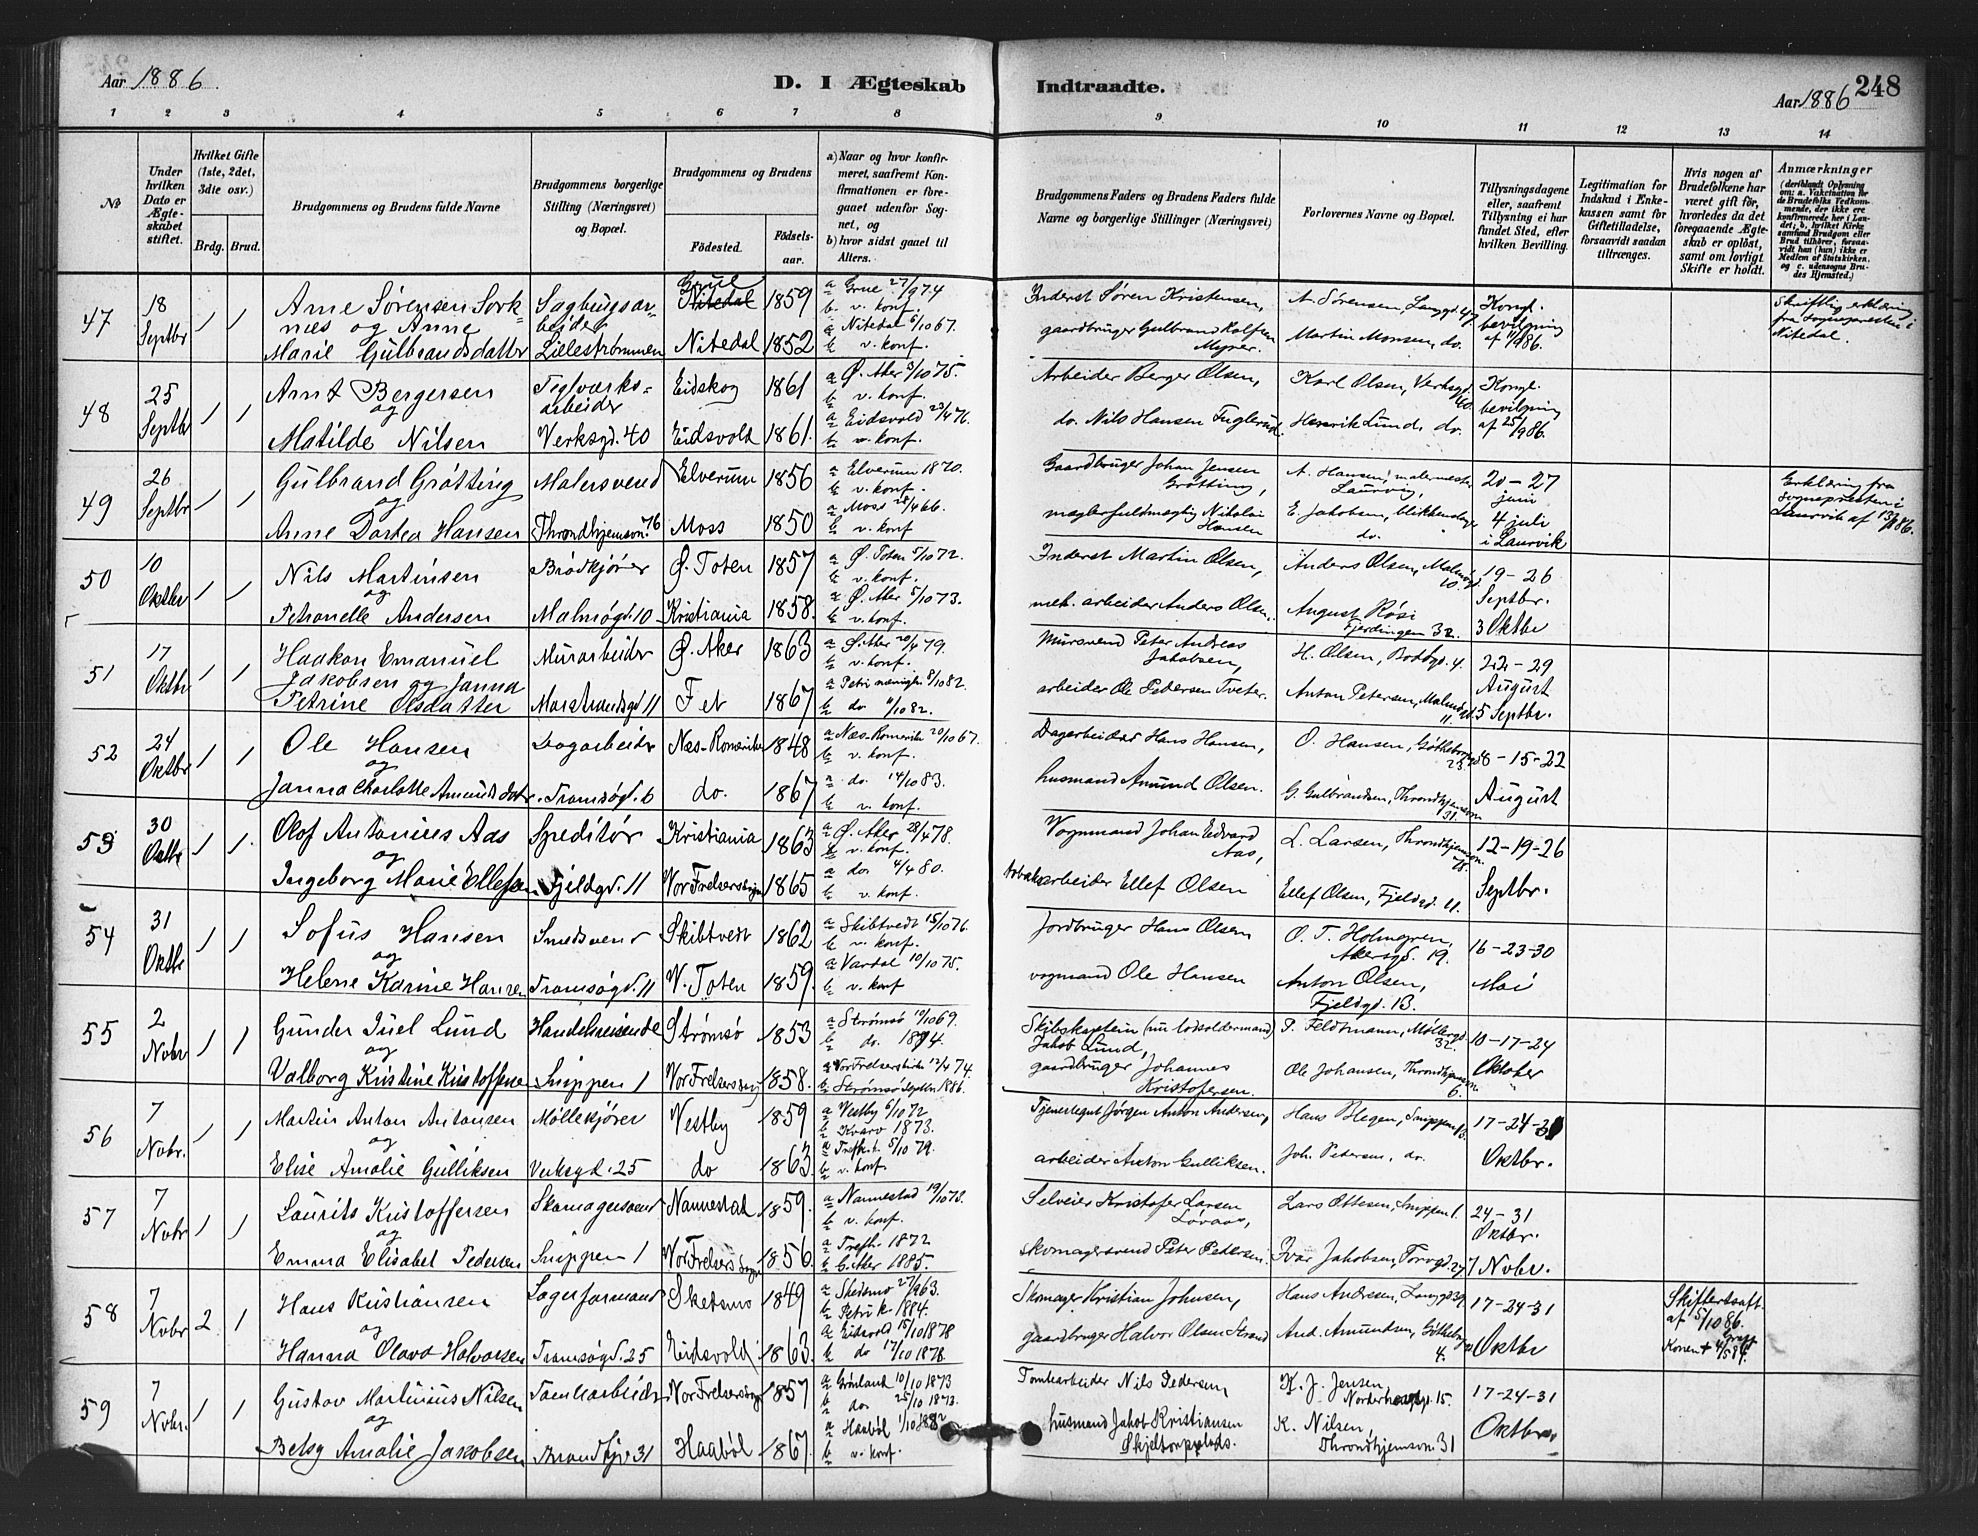 Aar 1886.
D. I Ægteskab Indtraadte.
Aar 1886
248
1 2 3 4 5 6 7 8 9 10 11 12 13 14
№
Under hvilken Dato er Ægteskabet stiftet.
Hvilket Gifte (1ste, 2det, 3die osv.)
Brdg. Brud.
Brudgommens og Brudens fulde Navne
Brudgommens borgerlige Stilling (Næringsvei) og Bopæl.
Brudgommens og Brudens
Fødested. Fødselsaar.
a) Naar og hvor konfirmeret, saafremt Konfirmationen er foregaaet udenfor Sognet, og
b) hvor sidst gaaet til Alters.
Brudgommens Faders og Brudens Faders fulde Navne og borgerlige Stillinger (Næringsvei)
Forlovernes Navne og Bopæl.
Tillysningsdagene eller, saafremt Tillysning ei har fundet Sted, efter hvilken Bevilling.
Legitimation for Indskud i Enkekassen samt for Giftetilladelse, forsaavidt saadan tiltrænges.
Hvis nogen af Brudefolkene har været gift før, hvorledes da det foregaaende Ægteskab er opløst, samt om lovligt Skifte er holdt.
Anmærkninger (deriblandt Oplysning om: a. Vakcination for de Brudefolks Vedkommende, der ikke ere konfirmerede her i Landet; b. hvilket Kirkesamfund Brudgom eller Brud tilhører, forsaavidt han (hun) ikke er Medlem af Statskirken, og c. udensogns Brudes Hjemsted.)
47 18 Septbr 1 1 Arne Sørensen Sorknæs og Anne Marie Gulbrandsdatter
Sagbrugsarbejder Lillestrømmen
Grue Nitedal 1859
Nitedal 1852
a Grue 27/9 74
b v. konf.
a Nitedal 6/10 67.
b v. konf.
Inderst Søren Kristensen,
gaardbruger Gulbrand Rolfsen Myrer.
A. Sørensen, Langgd. 47.
Martin Monsen, do.
Kongl. bevilgning af 11/9 86.
Skriftlig erklæring fra sognepresten i Nitedal.
48 25 Septbr 1 1 Arnt Bergersen og Matilde Nilsen
Teglværksarbeider Verksgd. 40
Eidskog 1861
Eidsvold 1861.
a Ø. Aker 3/10 75.
b v. konf.
a Eidsvold 23/4 76.
b v. konf.
Arbeider Berger Olsen,
do. Nils Hansen Fuglerud.
Karl Olsen, Verksgd. 40.
Henrik Lund, do.
Kongl. bevilgning af 25/9 86.
49 26 Septbr 1 1 Gulbrand Grøtting og Anne Dortea Hansen
Malersvend Throndhjemsvn. 76
Elverum 1856
Moss 1850
a Elverum 1870.
b v. konf.
a Moss 28/4 66.
b v. konf
Gaardbruger Johan Jensen Grøtting,
mæglerfuldmægtig Nikolai Hansen
A. Hansen, malermester Laurvig,
E. Jakobsen, blikkenslager do.
20–27 juni 4 juli i Laurvik
Erklæring fra sognepresten i Laurvik af 13/7 86.
50 10 Oktbr 1 1 Nils Martinsen og Petronelle Andersen
Brødkjører Malmøgd. 10
Ø. Toten 1857
Kristiania 1858.
a Ø. Toten 5/10 72.
b v. konf.
a Ø. Aker 5/10 73.
b v. konf.
Inderst Martin Olsen,
mek. arbeider Anders Olsen.
Anders Olsen, Malmøgd. 10.
August Røsi Fjerdingen 32.
19–26 Septbr. 3 Oktbr
51 17 Oktbr 1 1 Haakon Emanuel Jakobsen og Janna Petrine Olsdatter
Murarbeider Marstrandsgd 11
Ø. Aker 1863
Fet 1867
a Ø. Aker 20/4 79.
b v. konf.
a Petri menighed 8/10 82.
b do 11/10 82.
Mursvend Peter Andreas Jakobsen,
arbeider Ole Pedersen Tveter.
H. Olsen, Bodøgd. 4.
Anton Petersen, Malmøgd. 11.
22–29 August 5 Septbr.
52 24 Oktbr 1 1 Ole Hansen og Janna Charlotte Amundsdatr.
Dagarbeider Tromsøgd. 6
Næs-Romerike 1848
do. 1867
a Næs-Romerike 20/10 67.
b v. konf.
a do. 14/10 83.
b v. konf.
Dagarbeider Hans Hansen,
husmand Amund Olsen.
O. Hansen, Gøtheborggd. 23.
G. Gulbrandsen, Throndhjemsvn 31.
8–15–22 August
53 30 Oktbr 1 1. Olof Antonius Aas og Ingeborg Marie Ellefsen
Speditør Fjeldgd. 11
Kristiania 1863
Vor Frelsers sogn 1865
a Ø. Aker 28/4 78.
b v. konf.
a do 4/4 80.
b v. konf.
Vognmand Johan Edvard Aas,
arbeider Ellef Olsen
L. Larsen, Throndhjemsvn. 78.
Ellef Olsen, Fjeldgd. 11.
12–19–26 Septbr.
54 31 Oktbr 1 1 Sofus Hansen og Helene Karine Hansen
Smedsvend Tromsøgd. 11
Skibtvedt 1862
V. Toten 1859.
a Skibtvedt 15/10 76.
b v. konf.
a Vardal 10/10 75.
b v. konf
Jordbruger Hans Olsen
vogmand Ole Hansen
O. T. Holmgren, Akersgd. 19.
Anton Olsen, Fjeldgd. 13.
16–23–30 Mai
55 2 Nvbr 1 1 Gunder Juel Lund og Valborg Kristine Kristoffersen
Handelsreisende Snippen 1
Strømsø 1853
Vor Frelsers sogn 1858.
a Strømsø 10/10 69.
b do. 1874.
a Vor Frelsers kirke 12/4 74.
b Strømsø Septbr 1886.
Skibskaptein (nu lodsoldermand) Jakob Lund,
gaardbruger Johannes Kristofersen.
P. Feldtmann, Møllergd. 32.
Ole Johansen, Throndhjemsvn. 6.
10–17–24 Oktober
56 7 Nvbr. 1 1 Martin Anton Antonsen og Elise Amalie Gulliksen
Møllekjører Verksgd. 25
Vestby 1859
do 1863
a Vestby 6/10 72
b Kværn 1873.
a Trefk. 5/10 79.
b v. konf.
Tjenestegut Jørgen Anton Andersen,
arbeider Anton Gulliksen.
Hans Blegen, Snippen 13.
Joh. Petersen, do.
17–24–31 Oktbr.
57 7 Nvbr 1 1 Laurits Kristoffersen og Emma Elisabet Pedersen
Skomagersvend Snippen 1
Nannestad 1859.
Vor Frelsers Sogn 1856.
a Nannestad 19/10 73.
b v. konf.
a Trefk. 1872
b G. Aker 1885.
Selveier Kristofer Larsen Løvaas,
skomagersvend Peter Petersen.
Lars Ottesen, Snippen 1.
Ivar Jakobsen, Torvgd. 27
24–31 Oktbr. 7 Nvbr.
58 7 Nvbr 2 1 Hans Kristiansen og Hanna Olava Halvorsen
Lagerformand Tromsøgd. 25
Skedsmo 1849
Eidsvold 1863.
a Skedsmo 27/9 63.
b Petri k. 1884.
a Eidsvold 15/10 1878
b do 17/10 1878.
Skomager Kristian Johnsen,
gaardbruger Halvor Olsen Strand
Hans Andresen, Langgd 39.
And. Amundsen, Gøtheborggd. 4.
17–24–31 Oktbr
Skifteretsatt. af 5/10 86. Konen † 4/5 84.
59 7 Nvbr. 1 1 Gustav Martinius Nilsen og Betsy Amalie Jakobsen
Tomtearbeider Throndhjv. 31
Vor Frelsers sogn 1857
Haabøl 1867.
a Grønland 10/10 1873
b do. 25/10 1873.
a Haabøl 1/10 1882
b v. konf
Tomtearbeider Nils Pedersen,
husmand Jakob Kristiansen Skjeltorpplads.
K. J. Jensen, Norderhovgd. 15.
K. Nilsen, Throndhjemsvn. 31
17–24–31 Oktbr